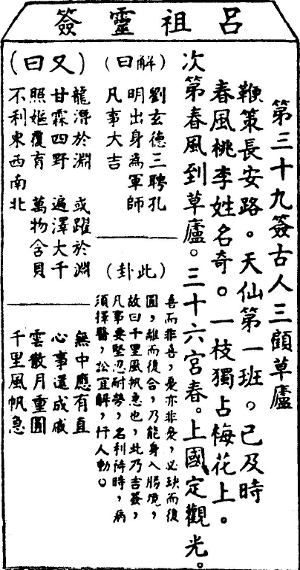 呂祖靈簽
第三十九簽古人三顧草廬
鞭策長安路。天仙第一班。已及時
春風桃李姓名奇。一枝獨占梅花上。
次第春風到草廬。三十六宮春。上國定觀光。
(解曰)
劉玄德三聘孔
明出身為軍師
凡事大吉
(此卦)
喜而非喜,憂亦非憂,必缺而後
圓,離而復合,乃能身入勝境,
故曰千里風帆急也,此乃吉簽,
凡事要堅忍耐勞,名利待時,病
須擇醫,訟宜解,行人動。
(又曰)
龍得於淵 或躍於淵
甘霖四野 遍澤大千
照嫗覆育 萬物含貝
不利東西南北
無中應有直
心事還成戚
雲散月重圓
千里風帆急